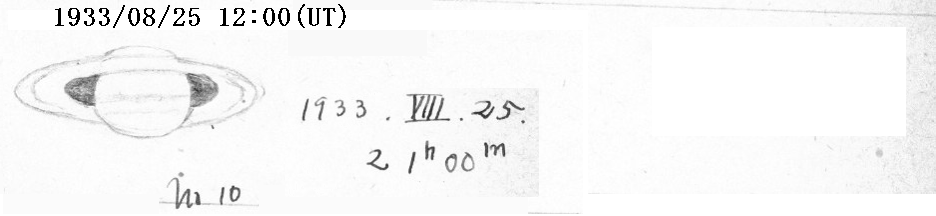 1933/08/25 12:00(UT)
1933. VIII. 25.
21h00m
No 10